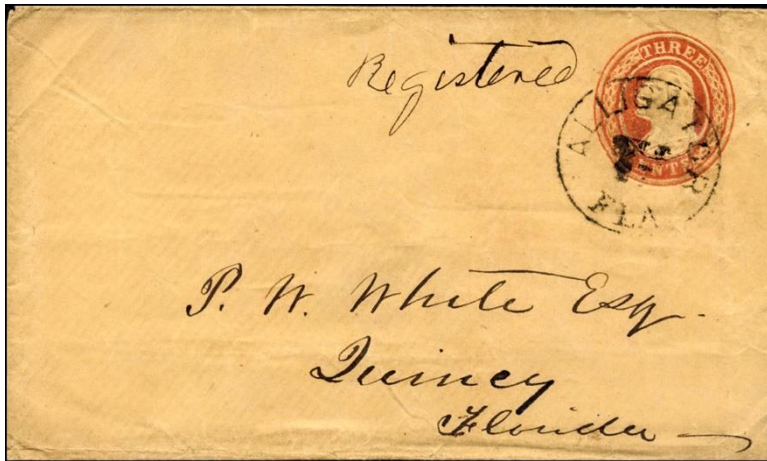 Registered
THREE
CENTS
ALLIGATOR
FLA
P. W. White Esq.
Quincy
Florida